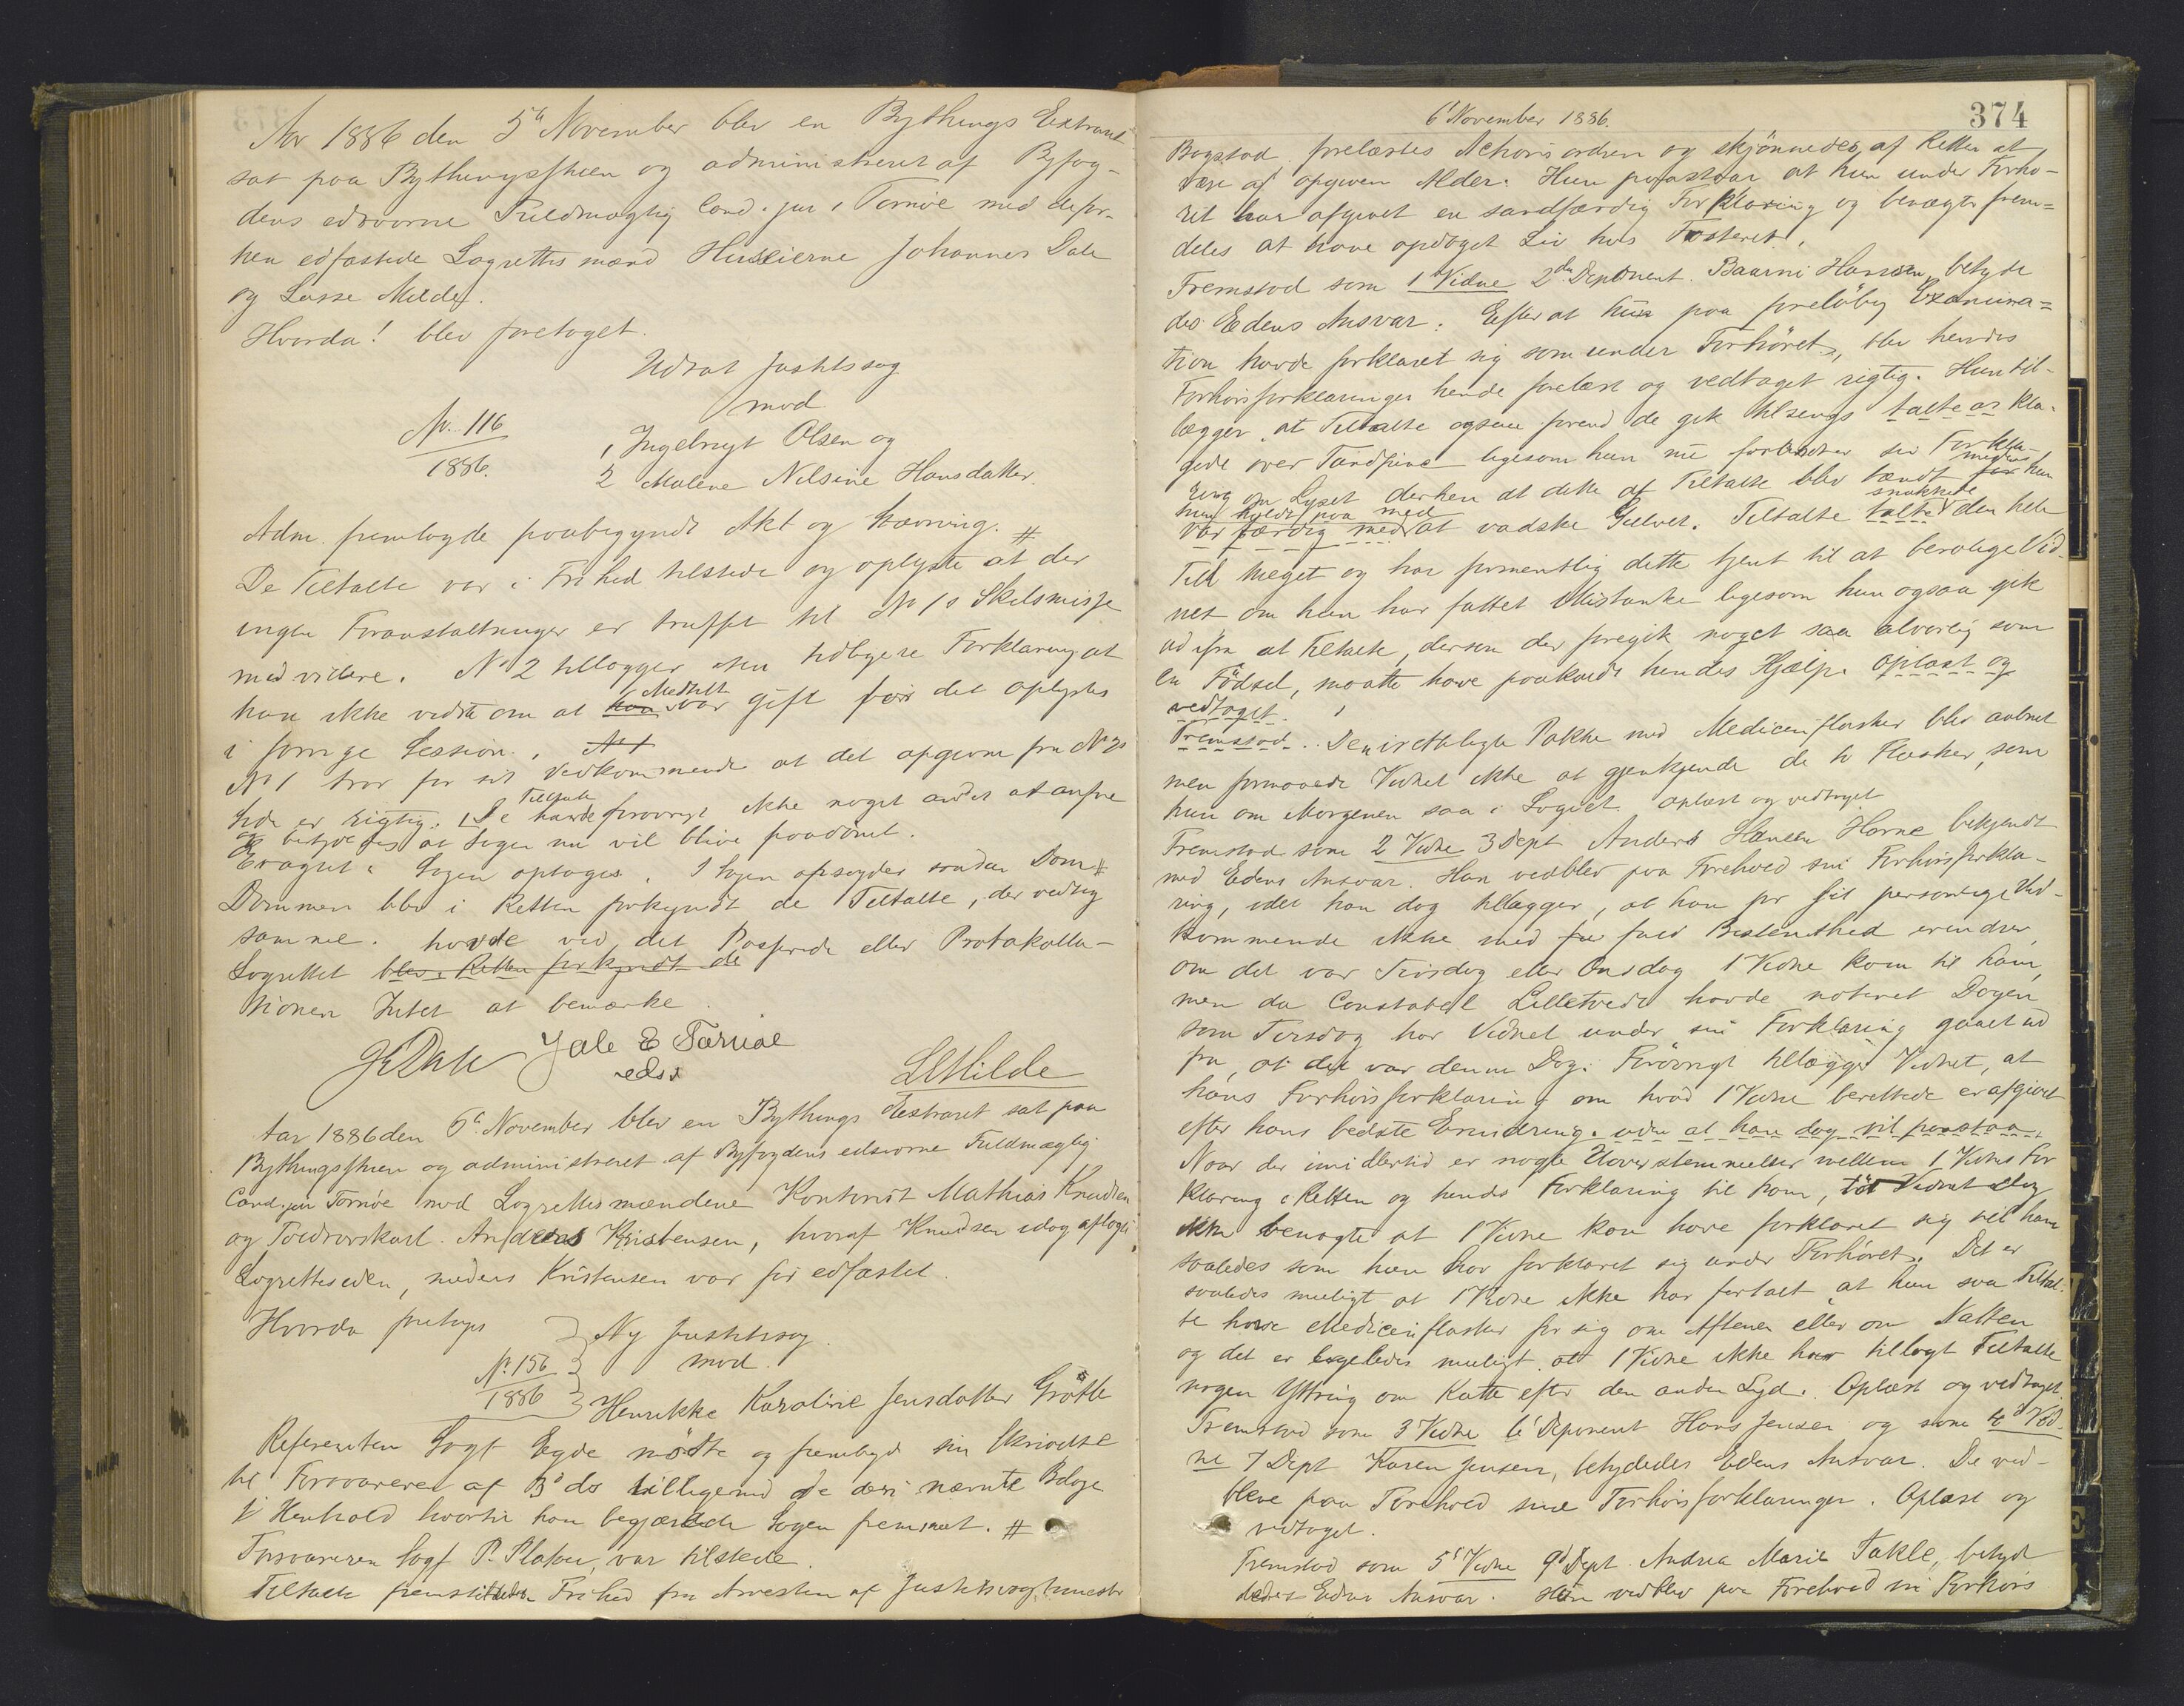 Aar 1886 den 5te November blev en Bythings Extraret
sat paa Bythingsstuen og administreret af Byfog-
dens edsvorne Fuldmægtig Cand. jur. Tornöe med de for-
hen edfæstede Lagrettesmænd Huseierne Johannes Dale
og Lasse Milde.
Hvorda! blev foretaget.
Udsat Justitssag
mod
No. 116
1886.
1, Ingebrigt Olsen og
2 Malene Nilsine Hansdatter.
Adm. fremlagde paabegyndt Akt og Stævning. #
De Tiltalte var i Frihed tilstede og oplyste at der
ingen Foranstaltninger er truffet til No 1s Skilsmisse
med videre. No 2 tillægger sin tidligere Forklaring at
hun ikke vidste om at han Medtiltalte var gift för det oplystes
i forrige Session. No 1
No 1 tror for sit Vedkommende at det opgivne fra No 2s
Side er rigtig. De Tiltalte havde forövrigt ikke noget andet at anføre
og betydedes at Sagen nu vil blive paadömt.
Eragtet: Sagen optages. I Sagen afsagdes saadan Dom #
Dommen blev i Retten forkyndt de Tiltalte, der vedtog
samme.
Lagrettet blev i Retten forkyndt de havde ved det Passerede eller Protokolla-
tionen Intet at bemærke.
J Dale Jale E Tornöe
edsv
L Milde
Aar 1886 den 6te November blev en Bythings Extraret sat paa
Bythingsstuen og administreret af Byfogdens edsvorne Fuldmægtig
Cand. jur Tornöe med Lagrettesmændene Kontorist Mathias Knudsen
og Toldrorskarl Anders Kristensen, hvoraf Knudsen idag aflagde
Lagretteseden, medens Kristensen var för edfæstet.
Hvorda foretoges
Ny Justitssag
No. 156
1886
mod
Henrikke Karoline Jensdatter Grötte
Referenten Sagf Egde mödte og fremlagde sin Skrivelse
til Forsvareren af 3d ds tilligemed de deri nævnte Bilage
i Henhold hvortil han begjærede Sagen fremmet. #
Forsvareren Sagf P. Platou, var tilstede.
Tiltalte fremstilledes i Frihed fra Arresten af
6 November 1886.
374
Bogstad forelæstes og skjönnedes af Retten at
være af opgiven Alder. Hun paastaar at hun under Forhö-
ret har afgivet en sandfærdig Forklaring og benægter frem-
deles at have opdaget Liv hos Fosteret.
Fremstod som 1 Vidne 2den Deponent. Baarni Hansen, betyde
des Edens Ansvar. Efterat hun paa forelöbig Examina-
tion havde forklaret sig som under Forhöret, blev hendes
Forhörsforklaringer hende forelæst og vedtaget rigtig. Hun til-
lægger, at Tiltalte ogsaa forend de gik tilsengs talte og kla-
gede over Tandpine ligesom hun nu forandrer sin Forkla-
ring om Lyset derhen at dette af Tiltalte blev tændt för medens hun
var færdig med hun holdt paa med at vadske Gulvet. Tiltalte talte snakkede den hele
Tid meget og har formentlig dette tjent til at berolige Vid-
net om hun har fattet Mistanke ligesom hun ogsaa gik
ud ifra at Tiltalte, dersom der foregik noget saa alvorlig som
en Födsel, maatte have paakaldt hendes Hjælp. Oplæst og
vedtaget.
Fremstod. Den i rettelagte Pakke med Medicinflasker blev aabnet
men formaaede Vidnet ikke at gjenkjende de to Flasker, som
hun om Morgenen saa i Logiet. oplæst og vedtaget
Fremstod som 2 Vidne 3 Dept Anders Hansen Horne bekjendt
med Edens Ansvar. Han vedblev paa Forehold sin Forhörsforkla-
ring, idet han dog tillægger, at han for sit personlige Ved-
kommende ikke med fu fuld Bestemthed erindrer
om det var Tirsdag eller Onsdag 1 Vidne kom til ham,
men da Constabel Lilletvedt havde noteret Dagen
som Tirsdag har Vidnet under sin Forklaring gaaet ud
fra, at det var denne Dag. Forövrigt tillægger Vidnet, at
hans Forhörsforklaring om hvad 1 Vidne berettede er afgivet
efter hans bedste Erindring. uden at han dog vil paastaa,
Naar der imidlertid er nogle Uoverstemmelser mellem 1 Vidnes For
klaring i Retten og hendes Forklaring til ham, tör Vidnet dog
ikke benægte at 1 Vidne kan have forklaret sig til ham
saaledes som hun har forklaret sig under Forhöret. Det er
saaledes muligt at 1 Vidne ikke har fortalt at hun saa Tiltal-
te have Medicinflasker for sig om Aftenen eller om Natten
og det er ligeledes muligt at 1 Vidne ikke har tillagt Tiltalte
nogen Yttring om Katte efter den anden Lyd. Oplæst og vedtaget.
Fremstod som 3 Vidne 6 Deponent Hans Jensen og som 4d Vid-
ne 7 Dept Karen Jensen, betydedes Edens Ansvar. De ved-
bleve paa Forehold sine Forhörsforklaringer. Oplæst og
vedtaget.
Fremstod som 5t Vidne 9d Dept Andrea Marie Takle, betyd
dedes Edens Ansvar. Hun vedblev paa Forehold sin Forhörs